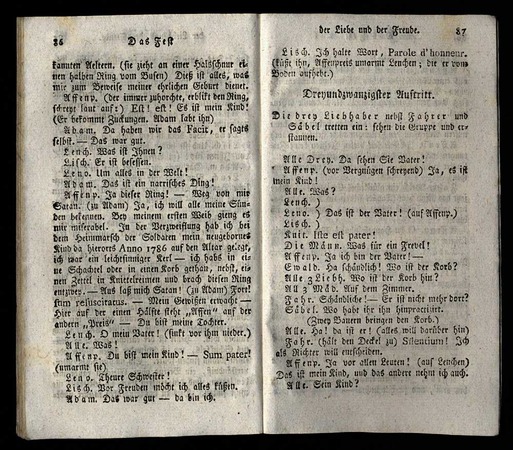 86 Das Fest
kannten Aeltern. (sie zieht an einer Halsschnur ei-
nen halben Ring vom Busen) Dieß ist alles, was
mir zum Beweise meiner ehrlichen Geburt dienet.
Affenp. (der immer zuhorchte, erblikt den Ring,
schreyt laut auf:) Est! est! Es ist mein Kind!
(Er bekommt Zuckungen. Adam labt ihn)
Adam. Da haben wir das Facit, er sagts
selbst. — Das war gut.
Lench. Was ist Ihnen?
Lisch. Er ist besessen.
Leno. Um alles in der Welt!
Adam. Das ist ein narrisches Ding!
Affenp. Ja dieser Ring! — Weg von mir
Satan. (zu Adam) Ja, ich will alle meine Sün-
den bekennen. Bey meinem ersten Weib gieng es
mir miserabel. In der Verzweiflung hab ich bei
dem Heimmarsch der Soldaten mein neugebornes
Kind da hierorts Anno 1786 auf den Altar gelegt,
ich war ein leichtsinniger Kerl — ich habs in ei-
ne Schachtel oder in einen Korb gethan, nebst, ei-
nen Zettel in Knittelreimen und brach diesen Ring
entzwey. — Aus laß mich Satan! (zu Adam) Fort!
sum resuscitatus. — Mein Gewissen erwacht —
Hier auf der einen Hälfte steht „Affen“ auf der
andern „Preis“ — Du bist meine Tochter.
Lench. O mein Vater! (sinkt vor ihm nieder.)
Alle. Was!
Affenp. Du bist mein Kind! — Sum pater!
(umarmt sie)
Leno. Theure Schwester!
Lisch. Vor Freuden möcht ich alles küßen.
Adam. Das war gut — da bin ich.
der Liebe und der Freude. 87
Lisch. Ich halte Wort, Parole d'honneur.
(küßt ihn, Affenpreis umarmt Lenchen; die er vom
Boden aufhebt.)
Dreyundzwanzigster Auftritt.
Die drey Liebhaber nebst Fahrer und
Säbel tretten ein: sehen die Gruppe und er-
staunen.
Alle Drey. Da sehen Sie Vater!
Affenp. (vor Vergnügen schreyend) Ja, es ist
mein Kind!
Alle. Was?
Lench. )
Leno. ) Das ist der Vater! (auf Affenp.)
Lisch. )
Knir. Iste est pater!
Die Männ. Was für ein Frevel!
Affenp. Ja ich bin der Vater! —
Ewald. Ha schändlich! Wo ist der Korb?
Alle 3 Liebh. Wo ist der Korb hin?
All 3 Mäd. Auf dem Zimmer.
Fahr. Schändliche! — Er ist nicht mehr dort?
Säbel. Wo habt ihr ihn hinpractizirt.
(Zwey Bauern bringen den Korb.)
Alle. Ha! da ist er! (alles will darüber hin)
Fahr. (hält den Deckel zu) Silentium! Ich
als Richter will entscheiden.
Affenp. Ja vor allen Leuten! (auf Lenchen)
Das ist mein Kind, und das andere nehm ich auch.
Alle. Sein Kind?